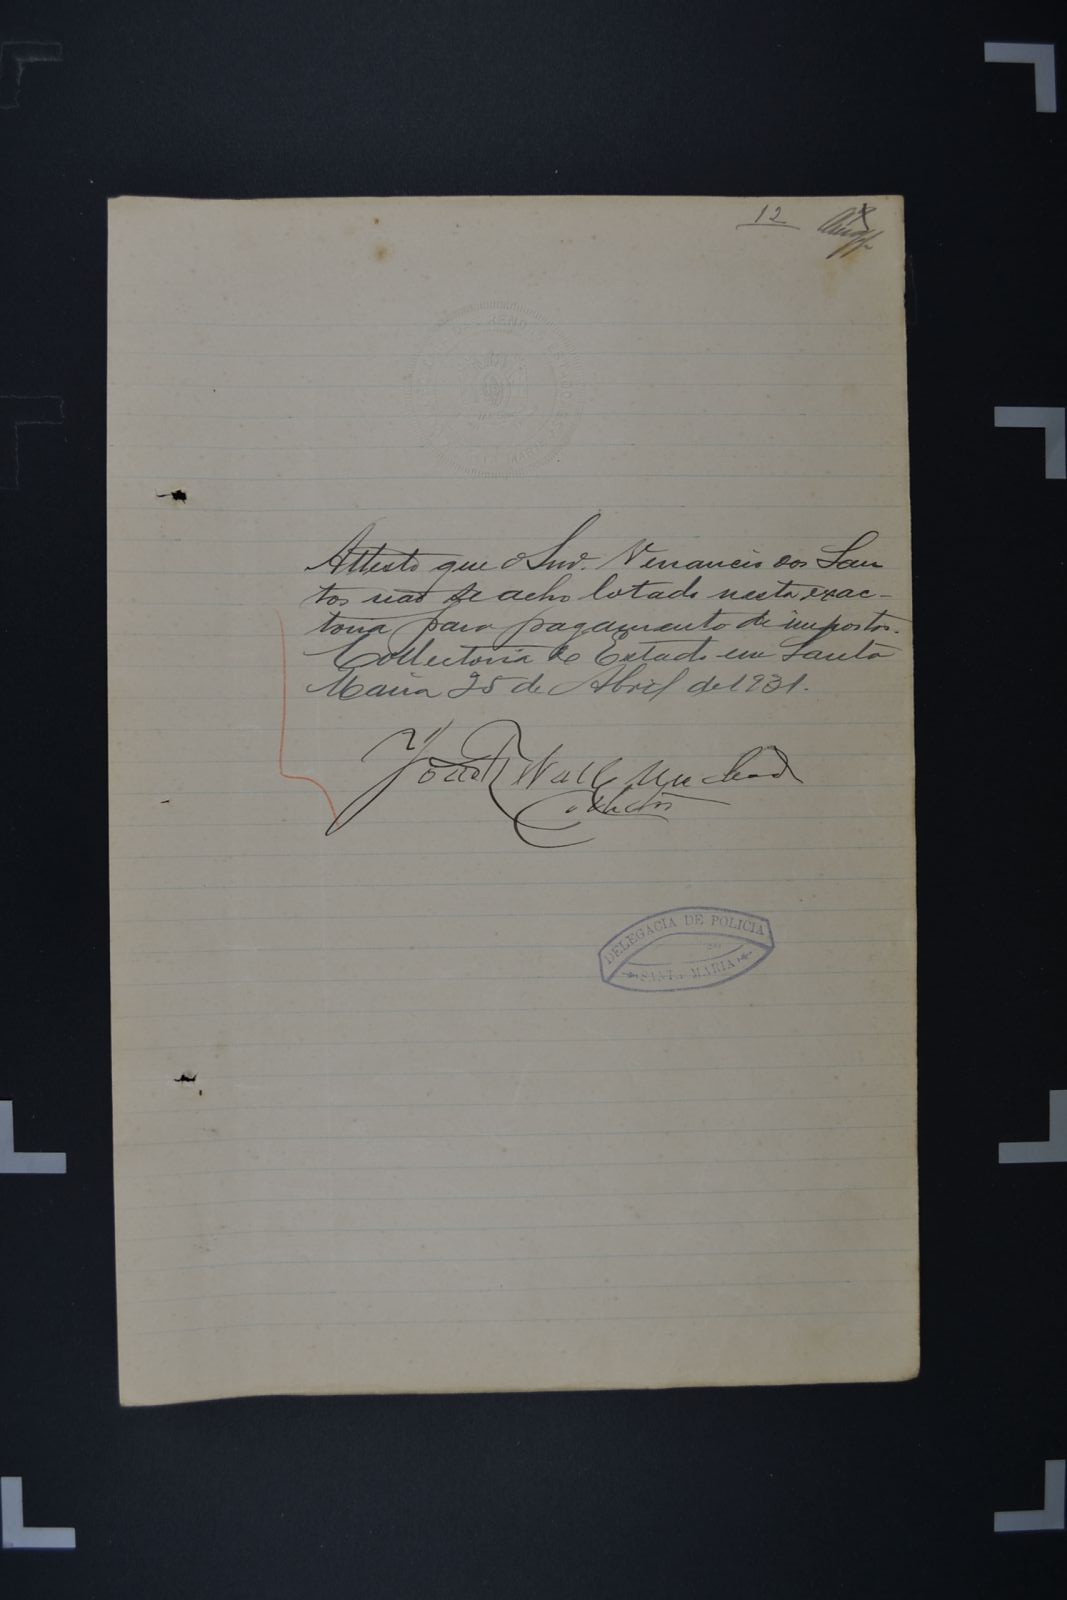 12
Attesto que o Snr. Venancio dos San
tos não se acha lotado nesta exac-
toria para pagamento de impostos.
Collectoria do Estado em Santa
Maria 25 de Abril de 1931.
Collector
DELEGACIA DE POLICIA
SANTA MARIA